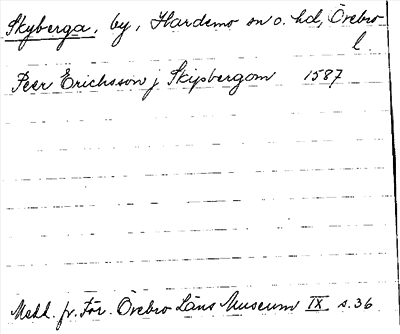 Skyberga, by, Hardemo sn o. hd, Örebro
l.
Peer Erichsson j Skipbergom 1587
Medd. fr. För. Örebro Läns Museum IX s. 36